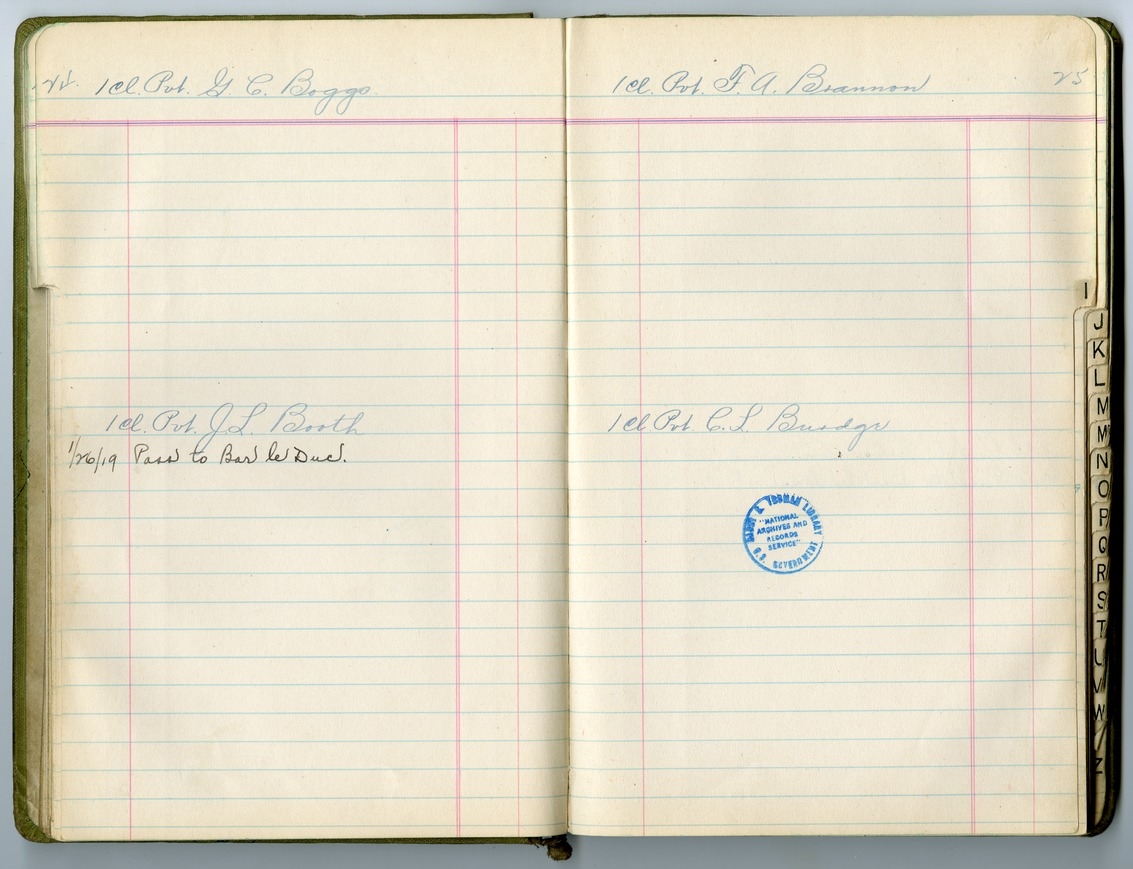 24. 1 Cl. Pvt. G. C. Boggs
1 Cl. Pvt. J. L. Booth
1/26/19 Pass to Bar le Duc.
1 Cl. Pvt. F. A. Brannon 25
1 Cl Pvt. C. L.
HARRY S. TRUMAN LIBRARY
"NATIONAL
ARCHIVES AND
RECORDS
SERVICE"
U.S. GOVERNMENT
I
J
K
L
M
Mc
N
O
P
Q
R
S
T
U
V
W
Z